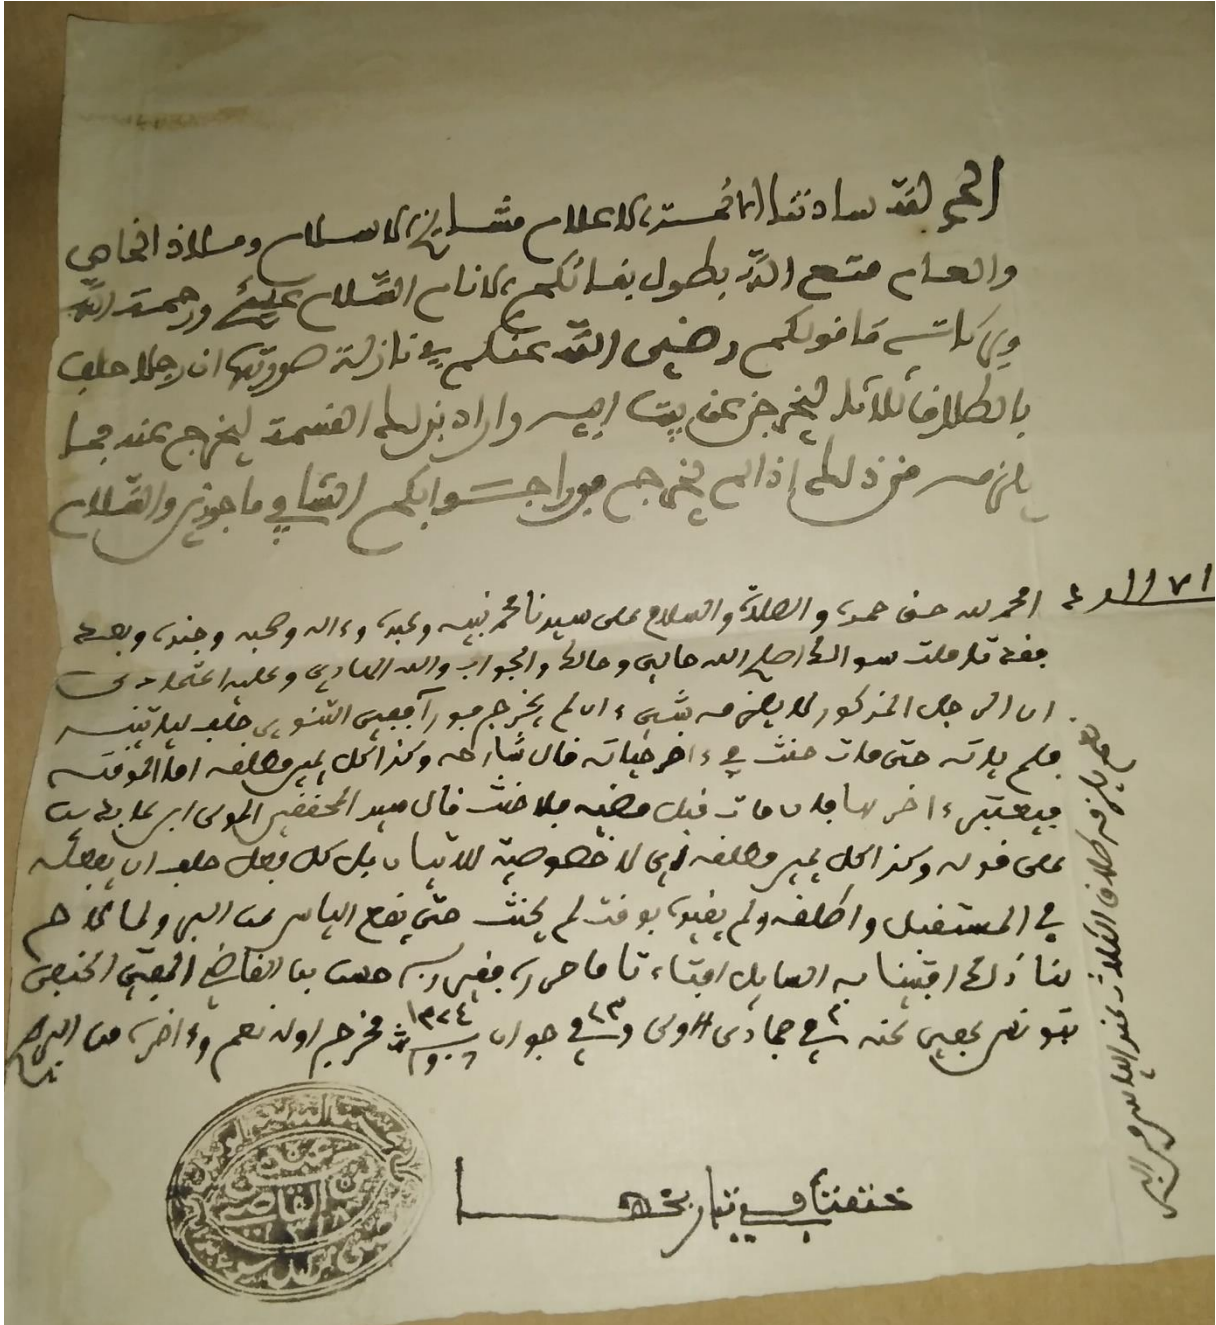 الحمد لله سادتنا الائمة الاعلام مشايخ الاسلام وملاذ الخاص
والعام متع الله بطول بقائكم الانام السلام عليكم ورحمة الله
وبركاته ما قولكم رضي الله عنكم في نازلة صورتها ان رجلا حلف
بالطلاق ليخرجن عن بيت ابيه واراد بذلك القسمة ليخرج عنه فما
يلزمه من ذلك إذا لم يخرج فورا جوابكم الشافي ماجورين والسلام
الحمد لله حق حمده والصلاة والسلام على سيدنا محمد نبيه وعبده وءاله وصحبه وجنده وبعد
فقد تاملت سوالك اصلح الله حالي وحالك والجواب والله الهادي وعليه اعتمادي
ان الرجل المذكور لا يلزمه شيء ان لم يخرج فورا ففي التنوير حلف لياتينه
فلم ياته حتى مات حنث في ءاخر حياته قال شارحه وكذا كل يمين مطلقه اما الموقته
فيعتبر ءاخرها فان مات قبل مضيه فلا حنث قال سيد المحققين المولى ابن عابدين
على قوله وكذا كل يمين مطلقه اي لا خصوصية للاتيان بل كل فعل حلف ان يفعله
في المستقبل واطلقه ولم يقيده بوقت لم يحنث حتى يقع الياس عن البر ولما لاح
لنا ذلك افتينا به السايل افتاء تاما حرره فقير ربه حسن بن القاضي المفتي الحنفي
بتونس عفي عنه في ٢ جمادى الاولى وفي ٢٣ جوان ١٣٢٤ مخرج اوله نعم وءاخره من البر صح
نعم يلزمه طلاق الثلاث عند الياس من البر
ختمنا في تاريخه